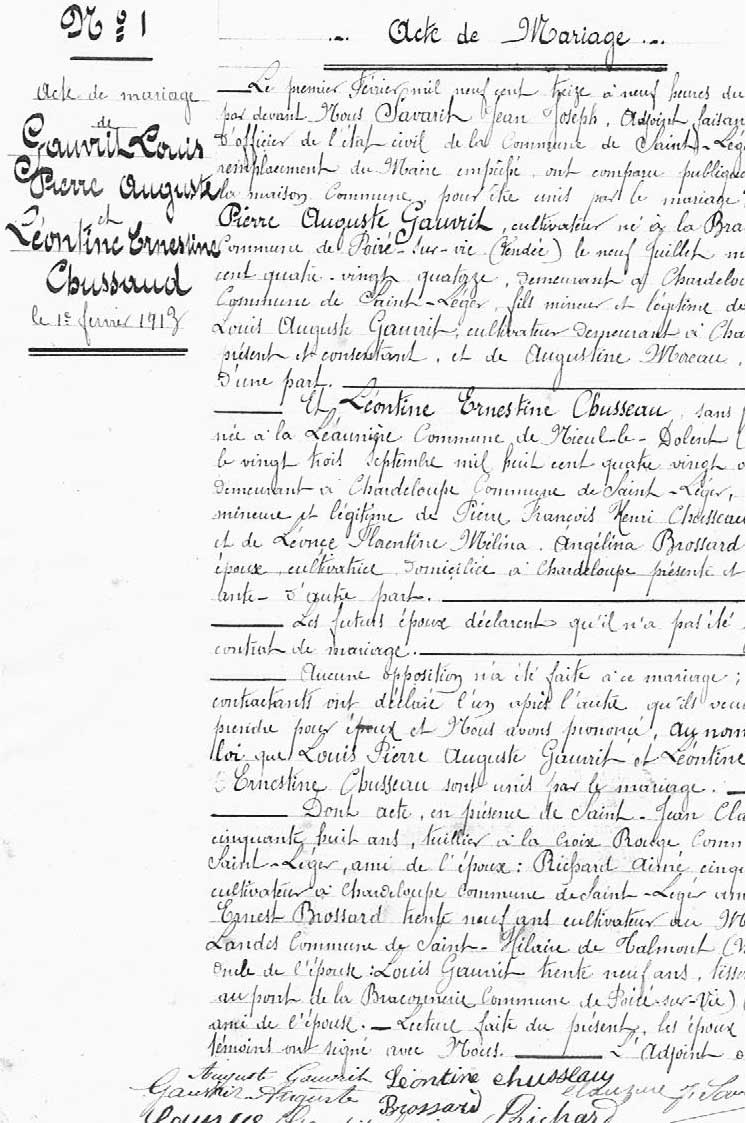 N° 1
Acte de mariage
de
Gauvrit Louis
Pierre Auguste
et
Léontine Ernestine
Chussaud
le 1er février 1913
Acte de Mariage
Le premier Février mil neuf cent treize à neuf heures du
par devant Nous Savarit Jean Joseph, Adjoint faisan
d'officier de l'état civil de la Commune de Saint-Lége
remplacement du Maire empêché, ont comparu publique
la maison Commune pour être unis par le mariage
Pierre Auguste Gauvrit, cultivateur né à la Bra
Commune de Poiré-sur-vie (Vendée) le neuf Juillet m
cent quatre-vingt quatorze, demeurant à Chardelou
Commune de Saint-Léger, fils mineur et légitime de
Louis Auguste Gauvrit, cultivateur demeurant à Cha
présent et consentant, et de Augustine Moreau,
d'une part.
Et Léontine Ernestine Chusseau, sans
née à la Léaunière Commune de Nieul-le-Dolent (
le vingt trois Septembre mil huit cent quatre vingt
demeurant à Chardeloupe Commune de Saint-Léger,
mineure et légitime de Pierre François Henri Chusseau
et de Léonce Florentine Mélina Angélina Brossard
époux, cultivatrice domiciliée à Chardeloupe présente et
ante- d'autre part.
Les futurs époux déclarent qu'il n'a pas été
contrat de mariage.
Aucune opposition n'a été faite à ce mariage ;
contractants ont déclaré l'un après l'autre qu'ils veu
prendre pour époux et Nous avons prononcé, au nom
loi que Louis Pierre Auguste Gauvrit et Léontine
Ernestine Chusseau sont unis par le mariage.
Dont acte, en présence de Saint-Jean Cla
cinquante huit ans, tuillier à la Croix Rouge Comm
Saint-Léger, ami de l'époux : Richard Aimé cinqu
cultivateur à Chardeloupe Commune de Saint-Léger am
Ernest Brossard trente neuf ans cultivateur au M
Landes Commune de Saint-Hilaire de Talmont (V
oncle de l'épouse : Louis Gauvrit trente neuf ans, tisse
au pont de la Braconnerie Commune de Poiré-sur-Vie) (
ami de l'épouse. — Lecture faite du présent, les époux
témoins ont signé avec Nous. L'Adjoint
Auguste Gauvrit Léontine chusseau
Gauvrit Auguste Brossard Richard